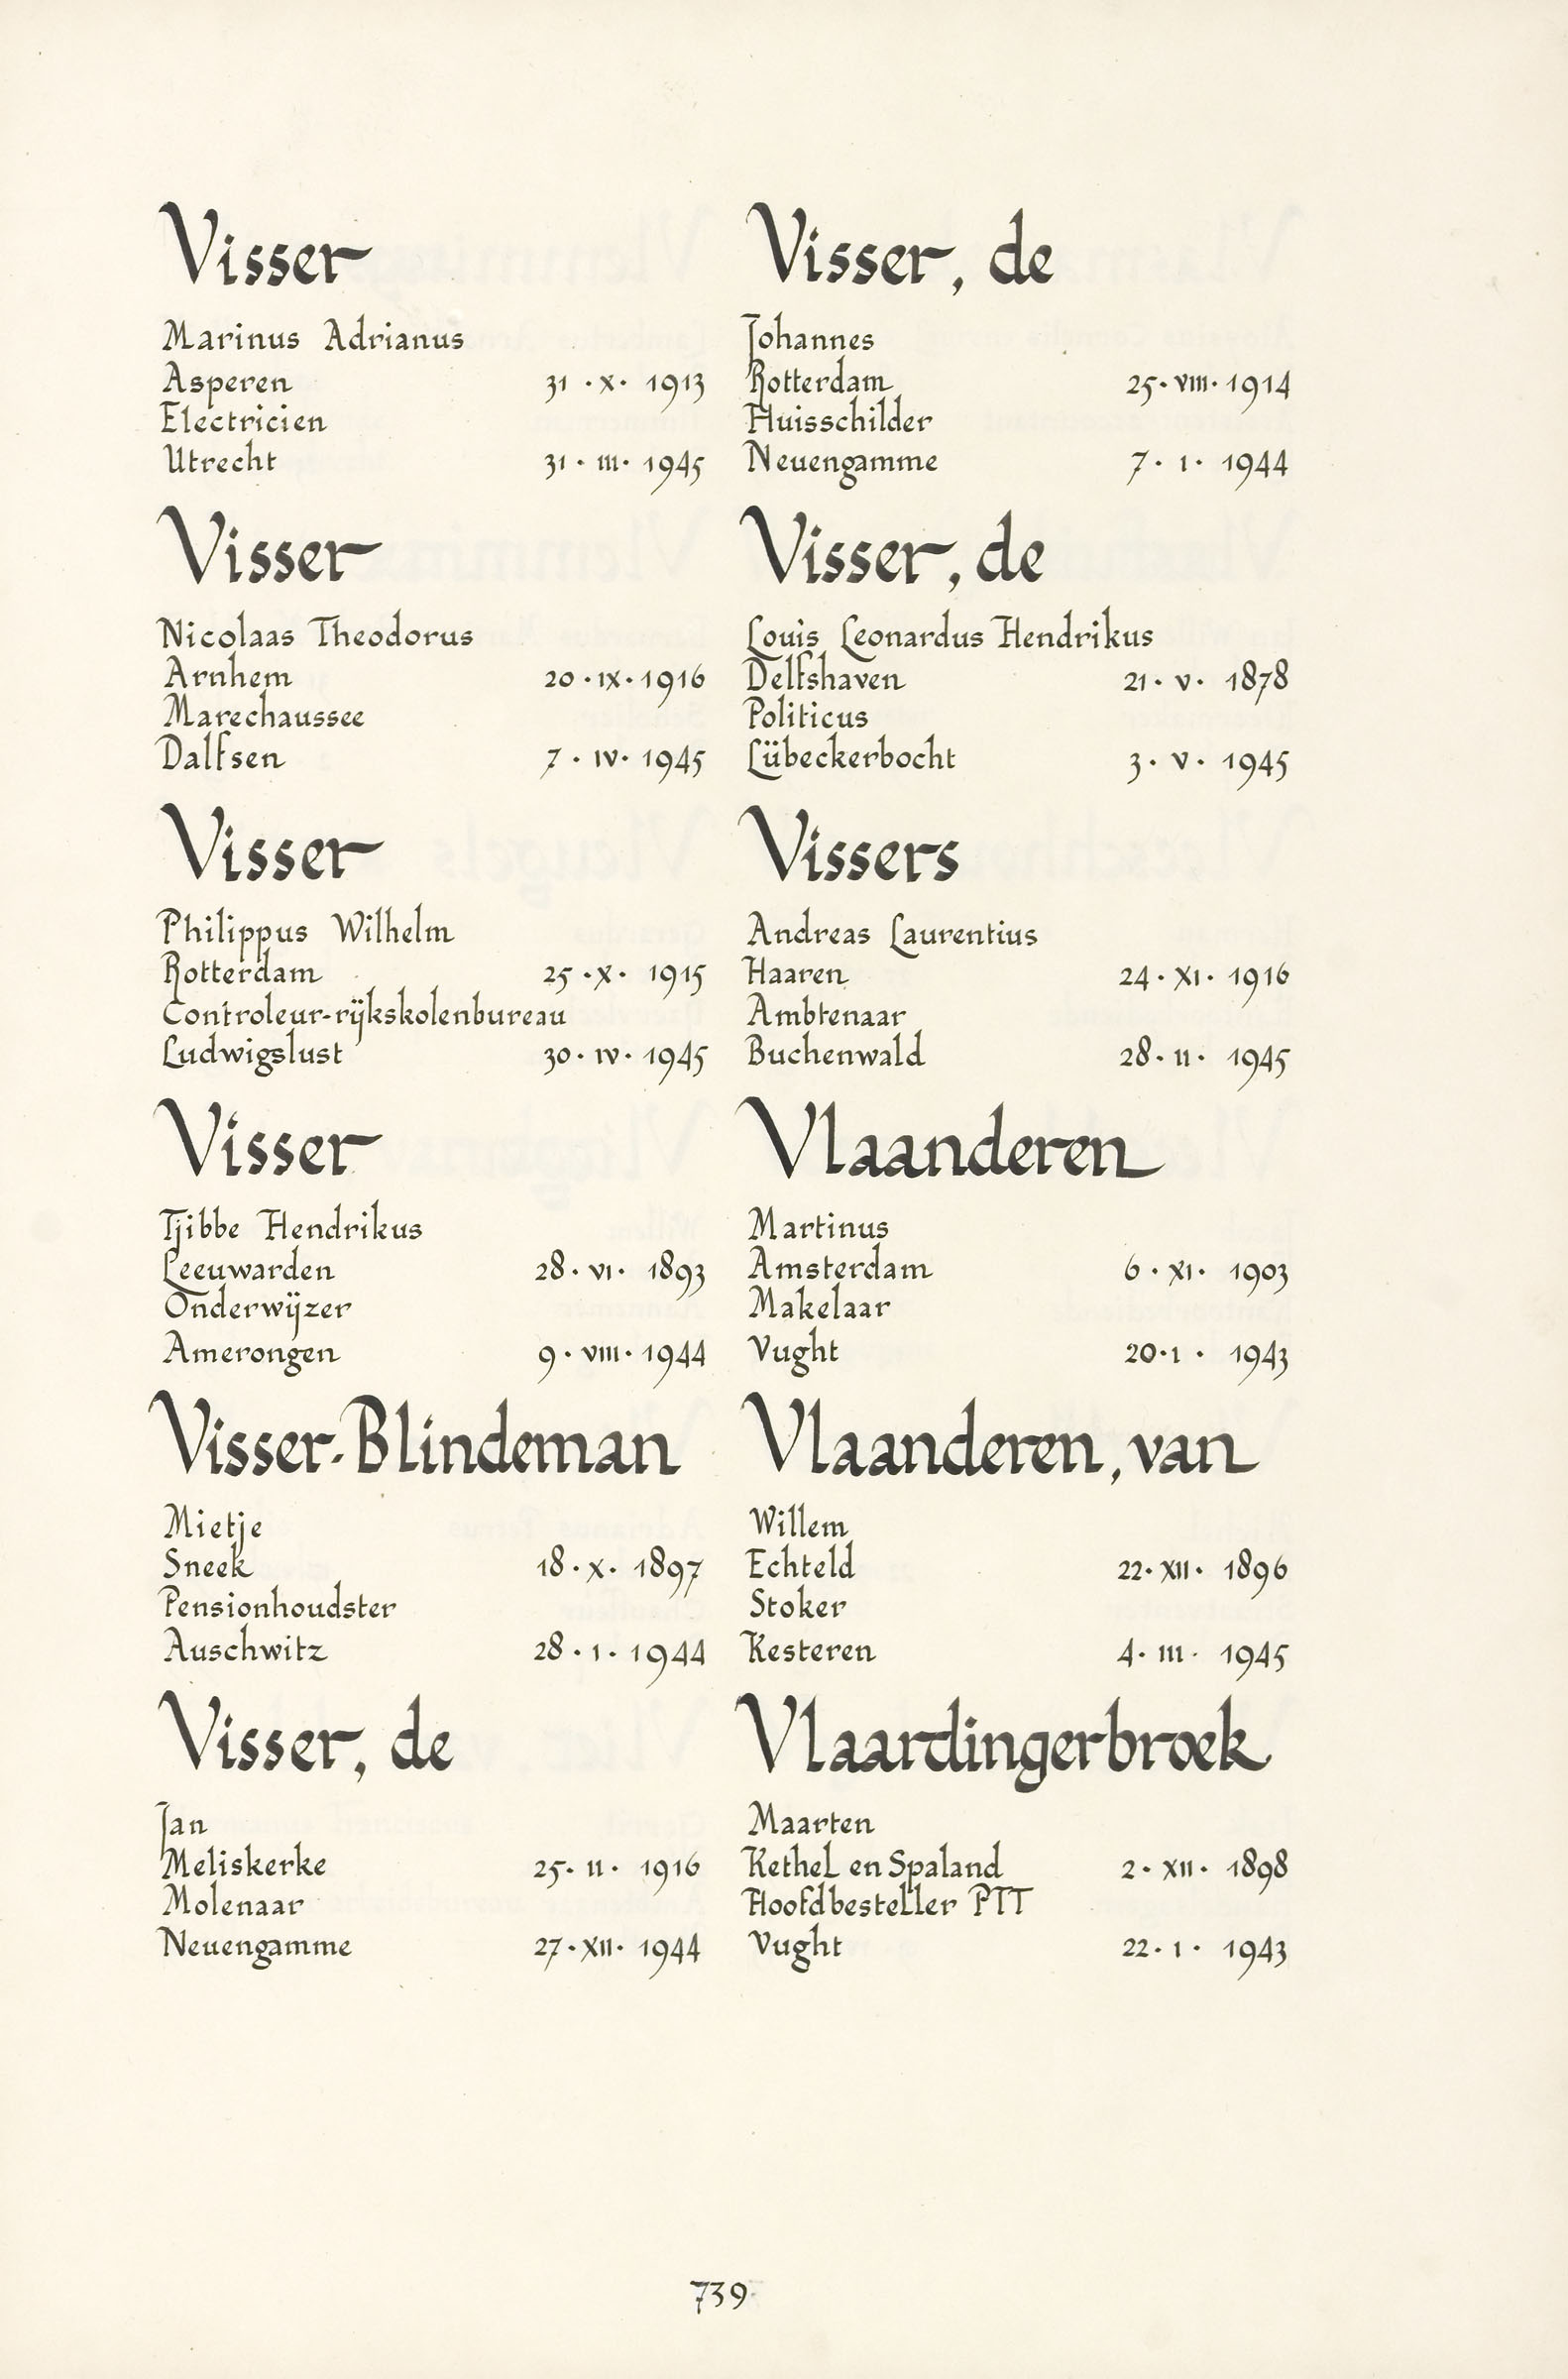 Visser
Marinus Adrianus
Asperen 31 · X · 1913
Electricien
Utrecht 31 · III · 1945
Visser
Nicolaas Theodorus
Arnhem 20 · IX · 1916
Marechaussee
Dalfsen 7 · IV · 1945
Visser
Philippus Wilhelm
Rotterdam 25 · X · 1915
Controleur-rijkskolenbureau
Ludwigslust 30 · IV · 1945
Visser
Tjibbe Hendrikus
Leeuwarden 28 · VI · 1893
Onderwijzer
Amerongen 9 · VIII · 1944
Visser-Blindeman
Mietje
Sneek 18 · X · 1897
Pensionhoudster
Auschwitz 28 · 1 · 1944
Visser, de
Jan
Meliskerke 25 · II · 1916
Molenaar
Neuengamme 27 · XII · 1944
Visser, de
Johannes
Rotterdam 25 · VIII · 1914
Huisschilder
Neuengamme 7 · 1 · 1944
Visser, de
Louis Leonardus Hendrikus
Delfshaven 21 · V · 1878
Politicus
Lübeckerbocht 3 · V · 1945
Vissers
Andreas Laurentius
Haaren 24 · XI · 1916
Ambtenaar
Buchenwald 28 · II · 1945
Vlaanderen
Martinus
Amsterdam 6 · XI · 1903
Makelaar
Vught 20 · 1 · 1943
Vlaanderen, van
Willem
Echteld 22 · XII · 1896
Stoker
Kesteren 4 · III · 1945
Vlaardingerbroek
Maarten
Kethel en Spaland 2 · XII · 1898
Hoofdbesteller PTT
Vught 22 · 1 · 1943
739